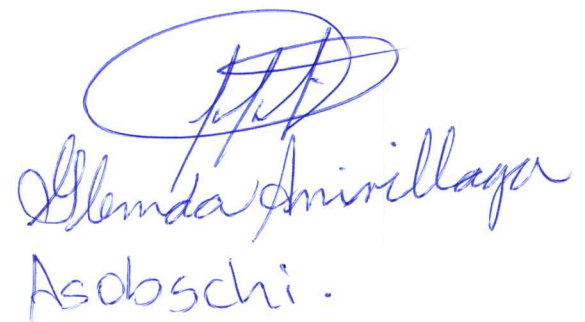 Glenda Amirillaga
Asobschi.